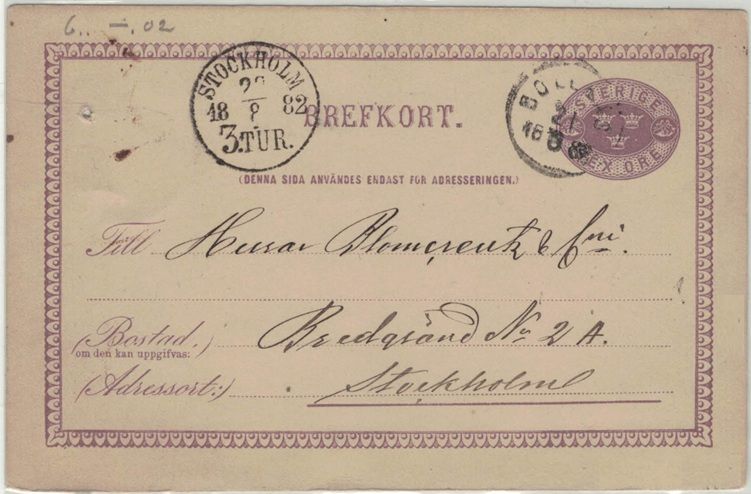 6.. —. 02
STOCKHOLM
18 8 82
3.TUR.
BREFKORT.
SVERIGE
SEX ÖRE
18 82
(DENNA SIDA ANVÄNDES ENDAST FÖR ADRESSERINGEN.)
Till Herrar Blomcreutz & Cni.
(Bostad,) Bredgränd No 2 A.
om den kan uppgifvas:
(Adressort:) Stockholm